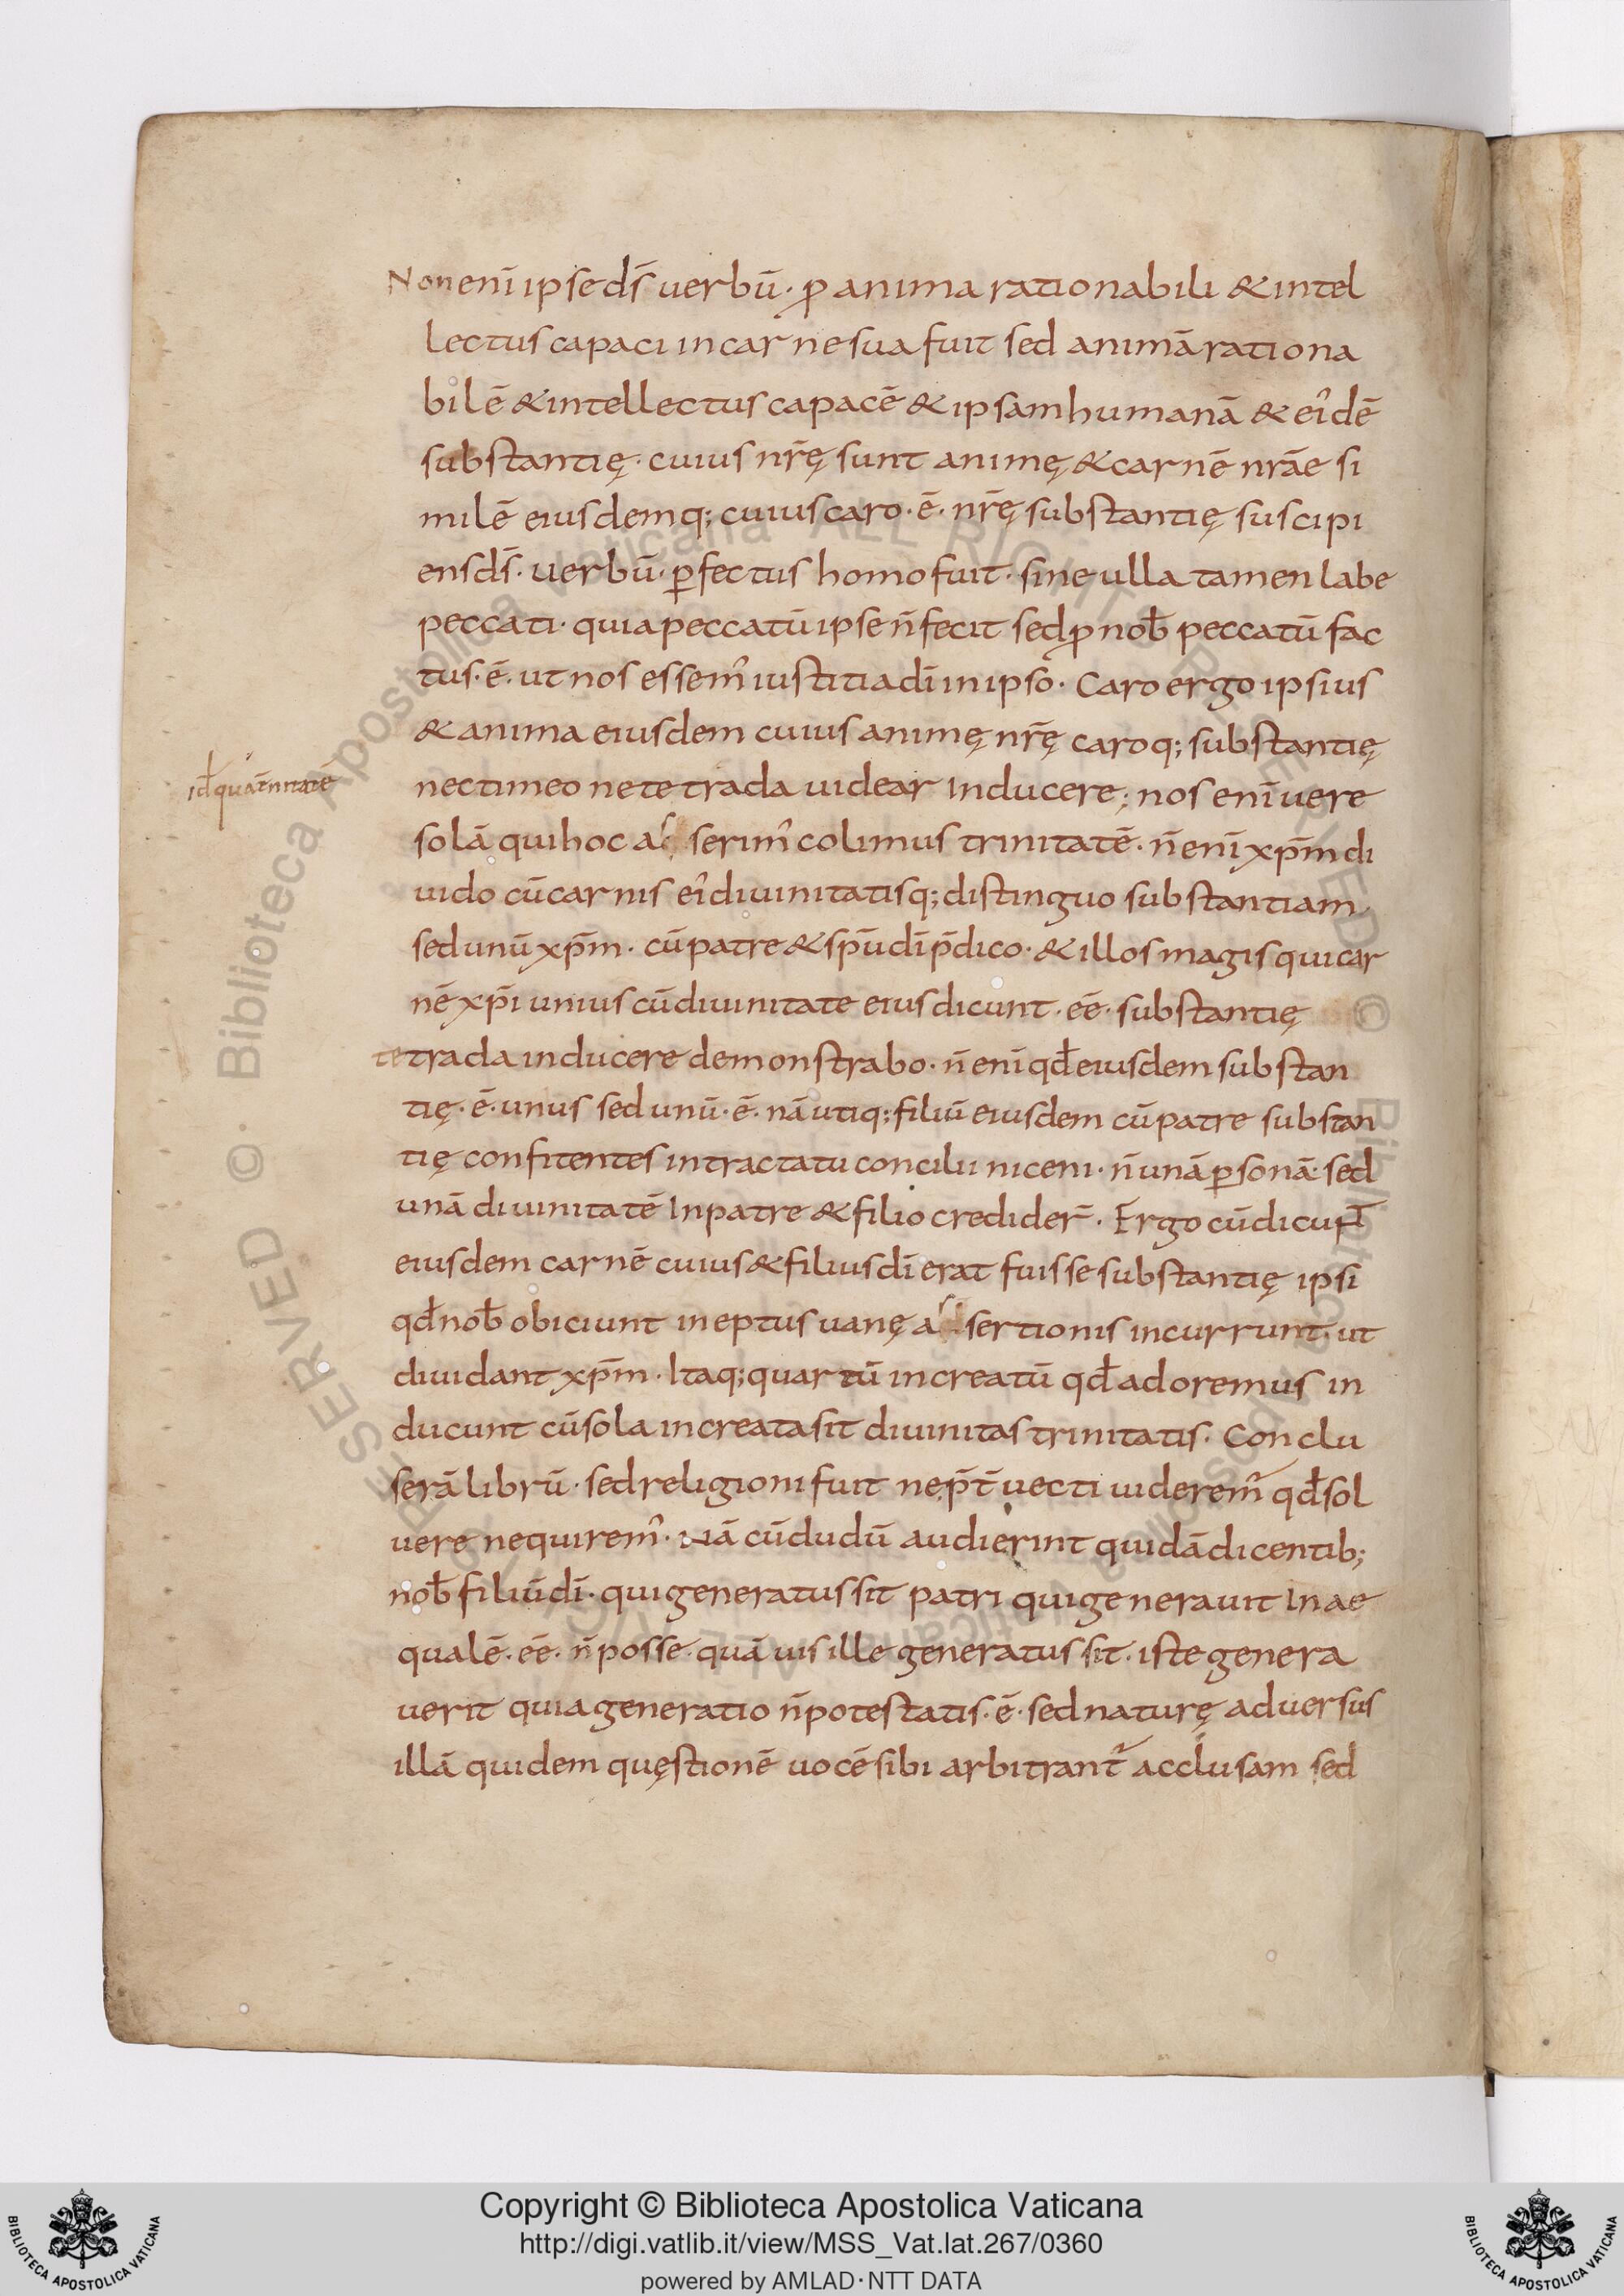 Non enī ipse ds̄ uerbū · ꝓ anima rationabili & intel
lectus capaci in carne sua fuit sed animā rationa
bilē & intellectus capacē & ipsam humanā & eı᾽dē
substantię · cuius nr̄ę sunt animę & carnē nrāe si
milē eiusdemq; cuius caro · ē · nr̄ę substantię suscipi
ens ds̄ · uerbū · ꝑfectus homo fuit · sine ulla tamen labe
peccati · quia peccatū ipse n̄ fecit sed ꝓ nob̄ peccatū fac
tus · ē · ut nos essem᾽ iustitia dī in ipso · Caro ergo ipsius
& anima eiusdem cuius animę nr̄ę caroq; substantię
id̄ quat̄nitatē
nec timeo ne tetrada uidear Inducere; nos enī uere
solā qui hoc as serim᾽ colimus trinitatē · n̄ enī xp̄m di
uido cū carnis eı᾽ diuinitatisq; distinguo substantiam ·
sed unū xp̄m · cū patre & spū dī p̄dico · & illos magis qui car
nē xp̄i unius cū diuinitate eius dicunt · eē · substantię
tetrada inducere demonstrabo · n̄ enī qd̄ eiusdem substan
tię · ē · unus sed unū · ē · nā utiq; filiū eiusdem cū patre substan
tię confitentes in tractatu concilii niceni · n̄ unā ꝑsonā · sed
unā diuinitatē In patre & filio credider̄ · Ergo cū dicunt
eiusdem carnē cuius & filius dī erat fuisse substantię ipsi
qd̄ nob̄ obiciunt ineptus uanę as sertionis incurrunt · ut
diuidant xp̄m · Itaq; quartū increatū qd̄ adoremus in
ducunt cū sola increata sit diuinitas trinitatis · Conclu
serā librū · sed religioni fuit ne p̄t̄uecti uiderem᾽ qd̄ sol
uere nequirem᾽ · Nā cū dudū audierint quidā dicentib;
nob̄ filiū dī · qui generatus sit patri qui generauit In ae
qualē · eē · n̄ posse · quā uis ille generatus sit · iste genera
uerit quia generatio n̄ potestatis · ē · sed naturę aduersus
illā quidem quęstionē uocē sibi arbitrant᾽ acclusam sed
Copyright © Biblioteca Apostolica Vaticana
http://digi.vatlib.it/view/MSS_Vat.lat.267/0360
powered by AMLAD·NTT DATA